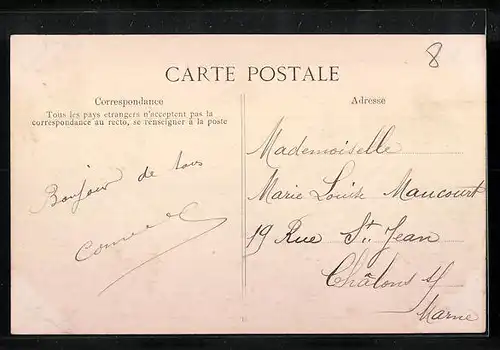 8
CARTE POSTALE
Correspondance
Tous les pays etrangers n'acceptent pas la
correspondance au recto, se renseigner à la poste
Bonjour de tous
Adresse
Mademoiselle
Marie Louise Maucourt
19 Rue St. Jean
Châlons s/
Marne